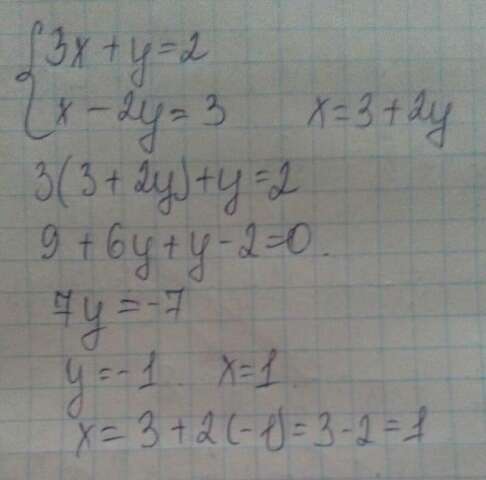 {3x + y = 2
x - 2y = 3 x = 3 + 2y
3(3 + 2y) + y = 2
9 + 6y + y - 2 = 0.
7y = -7
y = -1. x = 1
x = 3 + 2(-1) = 3 - 2 = 1